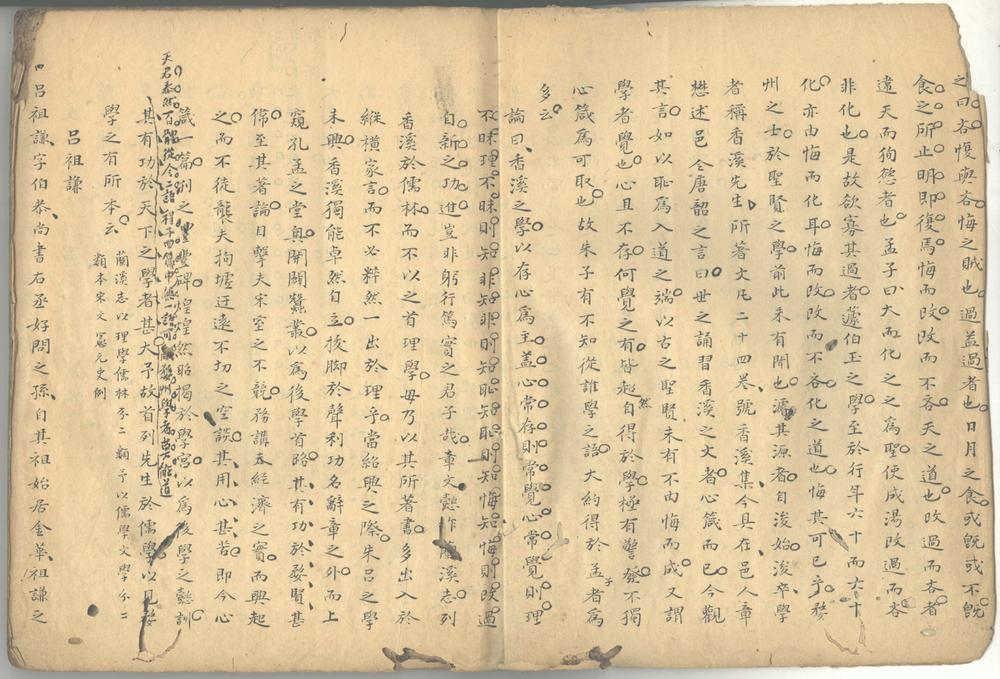 之曰吝愎與吝悔之賊也過益過者也日月之食或旣或不旣
食之所止明卽復焉悔而改改而不吝天之道也改過而吝者
違天而狥慾者也孟子曰大而化之之爲聖使成湯改過而吝
非化也是故欲寡其過者蘧伯玉之學至於行年六十而六十
化亦由悔而化耳悔而改改而不吝化之道也悔其可已乎婺
州之士於聖賢之學前此未有聞也濬其源者自浚始浚卒學
者稱香溪先生所著文凡二十四卷號香溪集今具在邑人章
懋述邑令唐韶之言曰世之誦習香溪之文者心箴而已今觀
其言如以恥爲入道之端以古之聖賢未有不由悔而成又謂
學者覺也心且不存何覺之有皆超然自得於學極有警發不獨
心箴爲可取也故朱子有不知從誰學之語大約得於孟子者爲
多云
論曰香溪之學以存心爲主蓋心常存則常覺心常覺則理
不昧理不昧則知非知非則知恥知恥則知悔知悔則改過
自新之功進豈非躬行篤實之君子哉章文懿作蘭溪志列
香溪於儒林而不以之首理學毋乃以其所著書多出入於
縱橫家言而不必粹然一出於理乎當紹興之際朱呂之學
未興香溪獨能卓然自立拔脚於聲利功名辭章之外而上
窺孔孟之堂奧開闢蠶叢以爲後學首路其有功於婺賢甚
偉至其著論目擊夫宋室之不競務講求經濟之實而興起
之而不徒襲夫拘墟迂遠不切之空談其用心甚苦卽今心
箴一篇訓之豐碑煌煌然昭揭於學宮以爲後學之懿訓
天君泰然百體從令語程子四箴中無一語可
其有功於天下之學者甚大予故首列先生於儒學以見婺
學之有所本云
蘭溪志以理學儒林分二類予以儒學文學分二
類本宋文憲元史例
呂祖謙
呂祖謙字伯恭尚書右丞好問之孫自其祖始居金華祖謙之